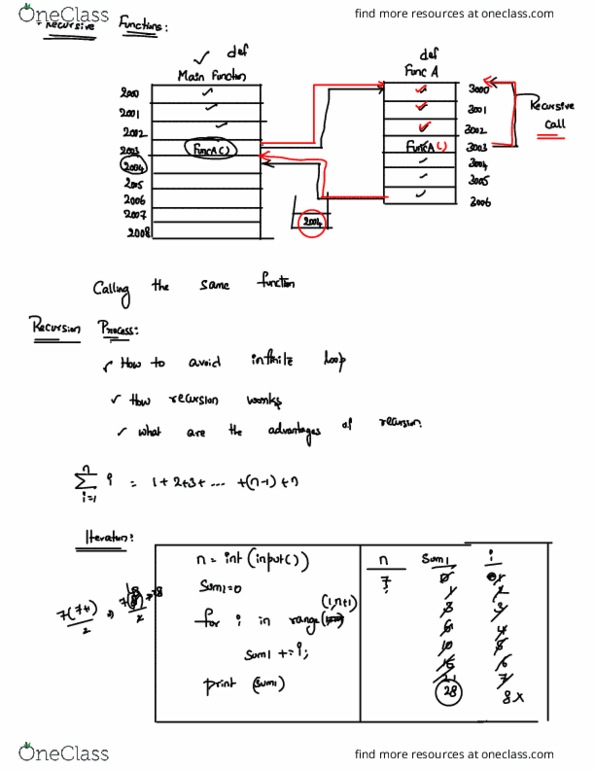 OneClass
find more resources at oneclass.com
Recursive Functions:
def
Main Function
def
Func A
2000
2001
2002
2003 FuncA()
2004
2005
2006
2007
2008
3000
3001
3002
FuncA() 3003
3004
3005
3006
Recursive
Call
2004
Calling the same function
Recursion Process:
How to avoid infinite loop
How recursion works
what are the advantages of recursion.
n
∑ i = 1+2+3+ .... +(n-1)+n
i=1
Iteration:
n = int(input())
Sum1=0
for i in range(1,n+1)
Sum1 += i;
print (Sum1)
n Sum1 i
7 0
1 2
3 3
6 4
10 5
15 6
21 7
28 8x
OneClass
find more resources at oneclass.com